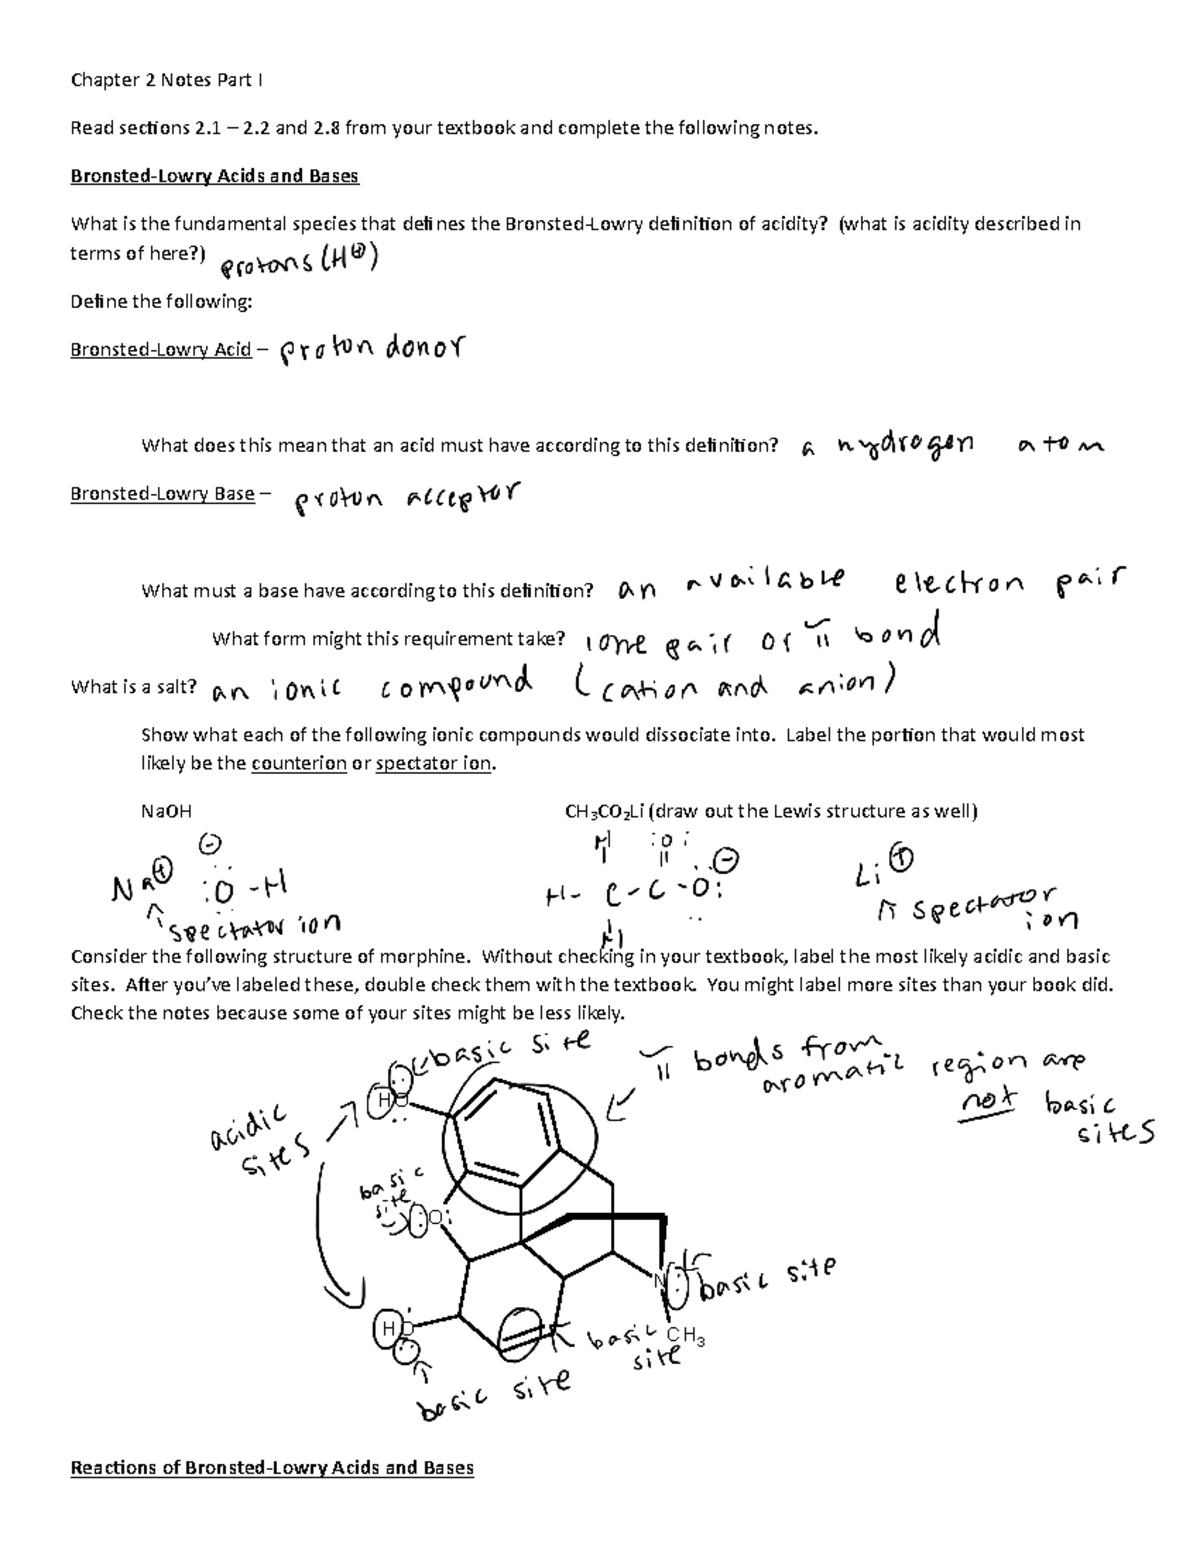 Chapter 2 Notes Part I
Read sections 2.1 – 2.2 and 2.8 from your textbook and complete the following notes.
Bronsted-Lowry Acids and Bases
What is the fundamental species that defines the Bronsted-Lowry definition of acidity?  (what is acidity described in
terms of here?) protons (H⊕)
Define the following:
Bronsted-Lowry Acid – proton donor
What does this mean that an acid must have according to this definition? a hydrogen atom
Bronsted-Lowry Base – proton acceptor
What must a base have according to this definition? an available electron pair
What form might this requirement take? lone pair or π bond
What is a salt? an ionic compound (cation and anion)
Show what each of the following ionic compounds would dissociate into.  Label the portion that would most
likely be the counterion or spectator ion.
NaOH CH₃CO₂Li (draw out the Lewis structure as well)
⊖ H :O:
Na⊕ :O-H H-C-C-O: ⊖ Li⊕
↑ spectator ion H ↑ spectator
ion
Consider the following structure of morphine.  Without checking in your textbook, label the most likely acidic and basic
sites.  After you've labeled these, double check them with the textbook.  You might label more sites than your book did.
Check the notes because some of your sites might be less likely.
basic site
π bonds from
aromatic region are
not basic
sites
acidic
sites
HO
basic
site
O:
N
basic site
HO
CH₃
basic
site
basic site
Reactions of Bronsted-Lowry Acids and Bases